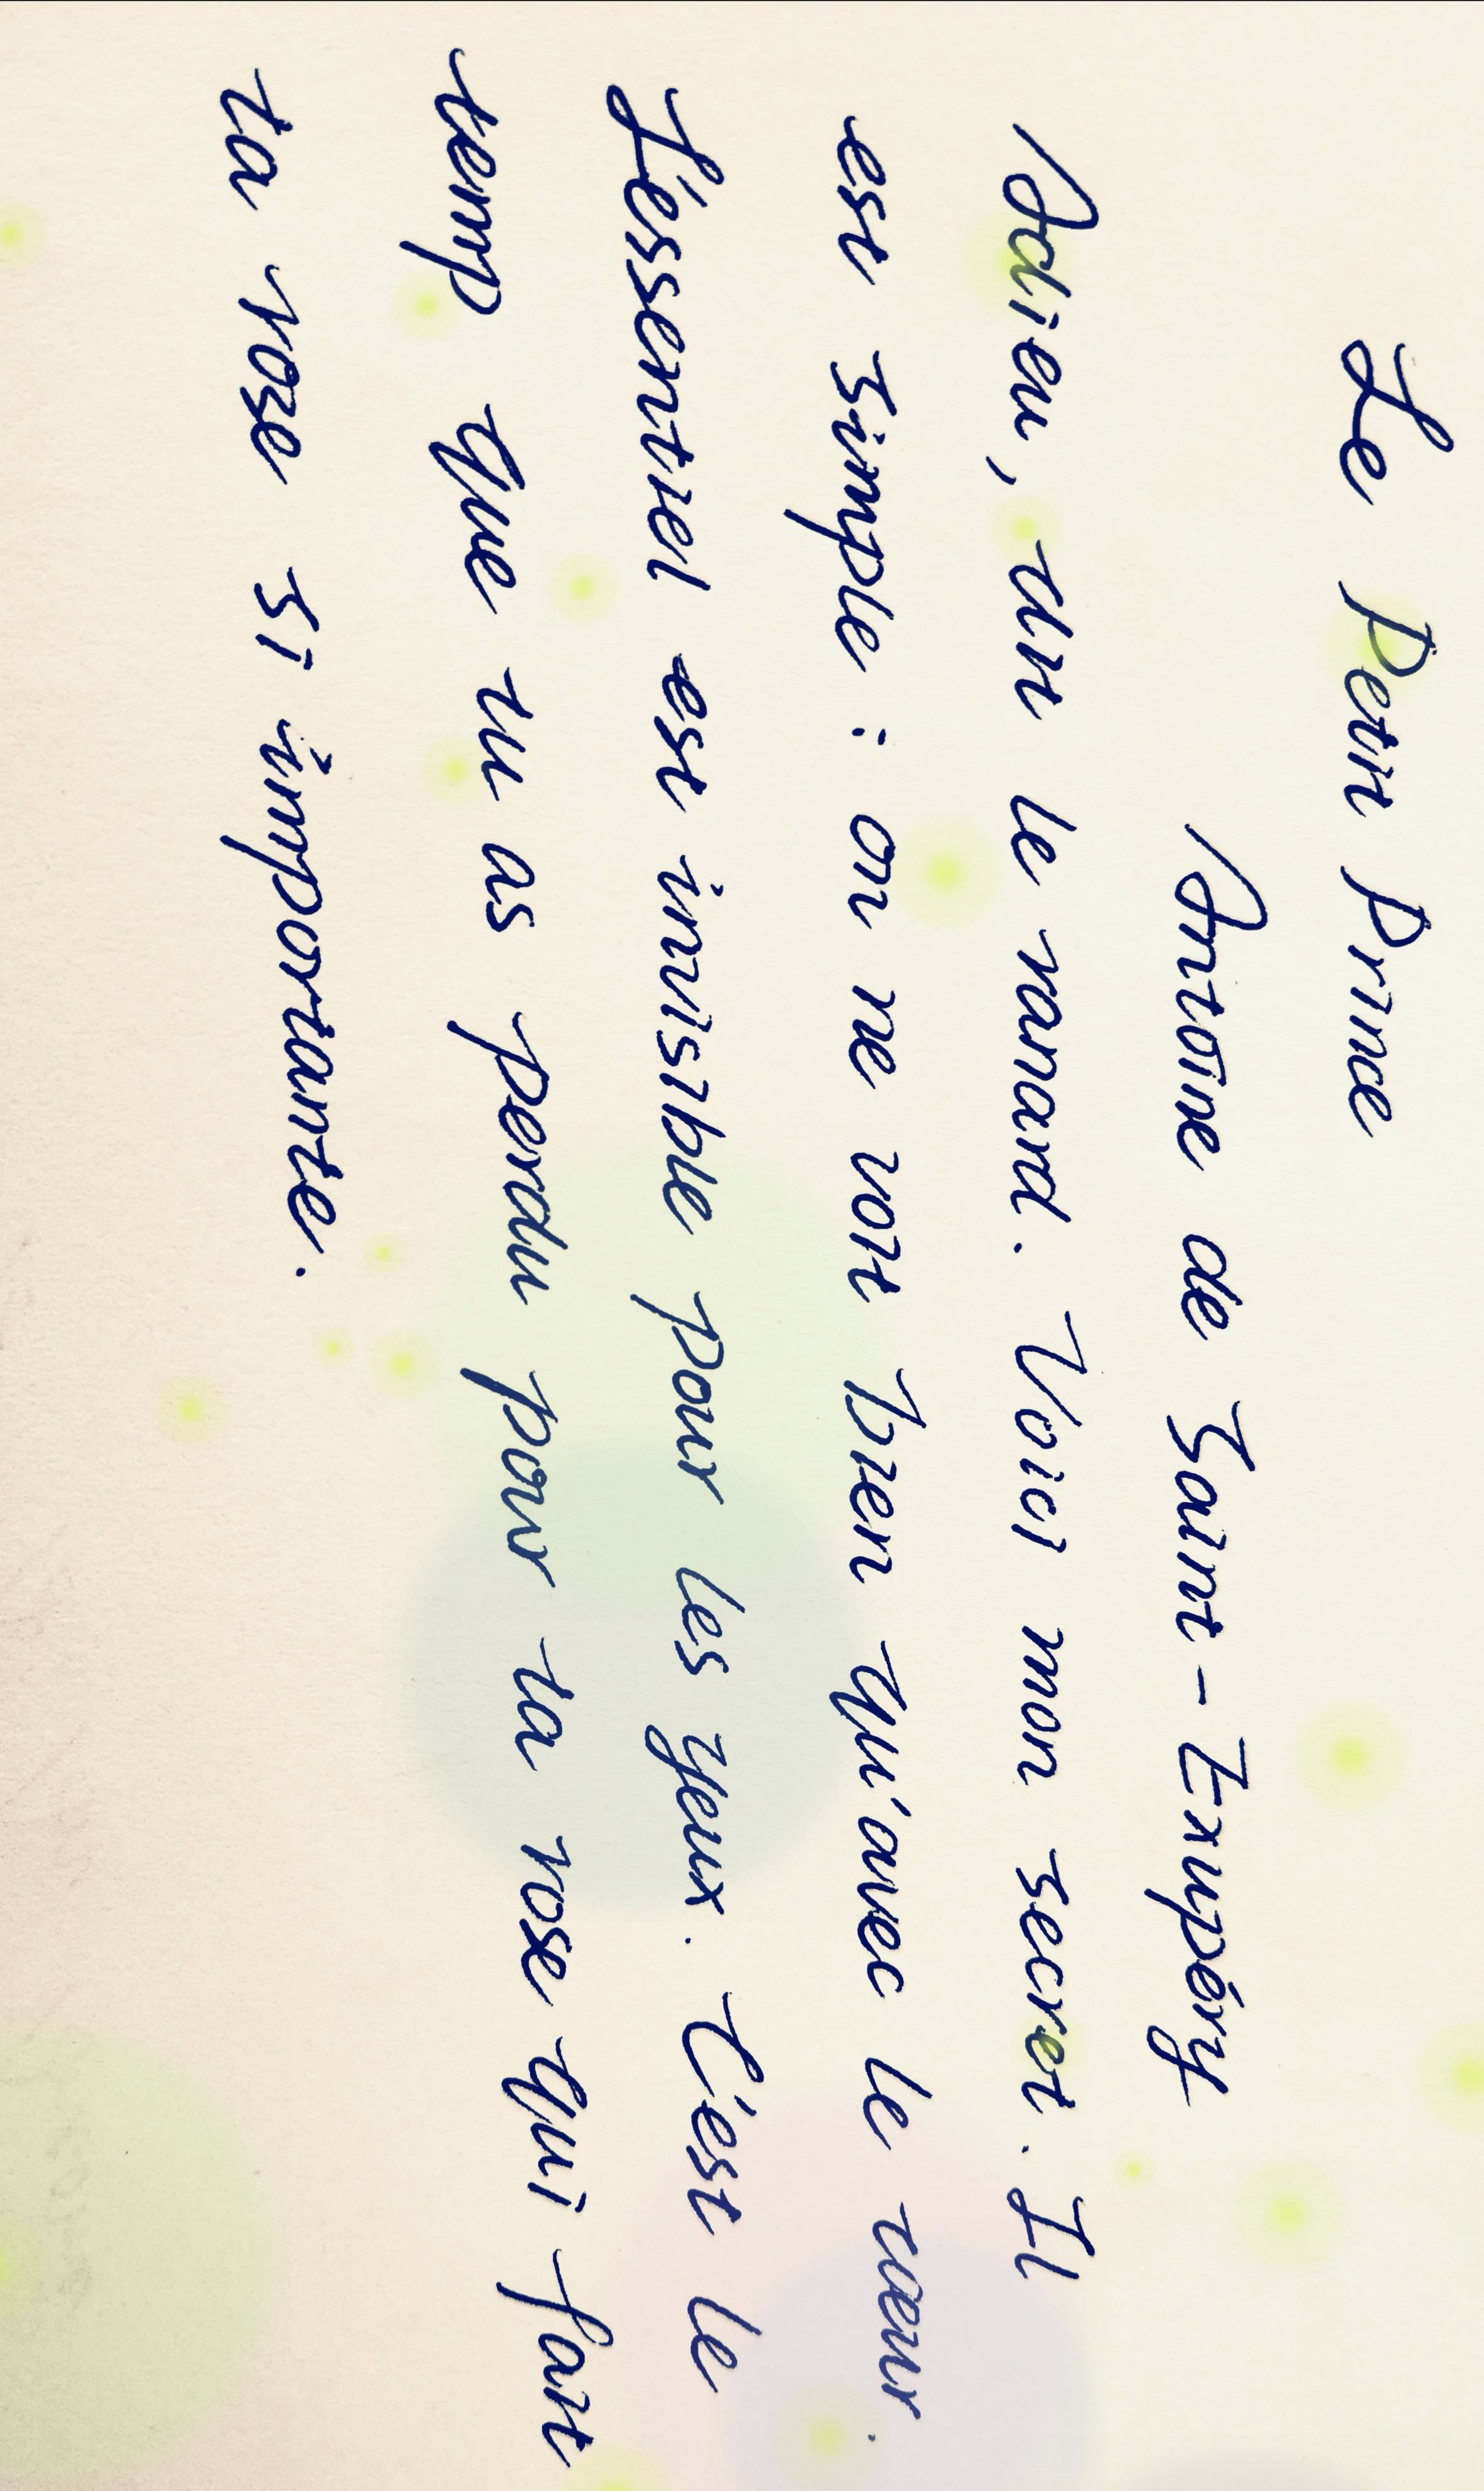 Le Petit Prince
Antoine de Saint-Exupéry
Adieu, dit le renard. Voici mon secret. Il
est simple : on ne voit bien qu'avec le cœur.
L'essentiel est invisible pour les yeux. C'est le
temp que tu as perdu pour ta rose qui fait
ta rose si importante.